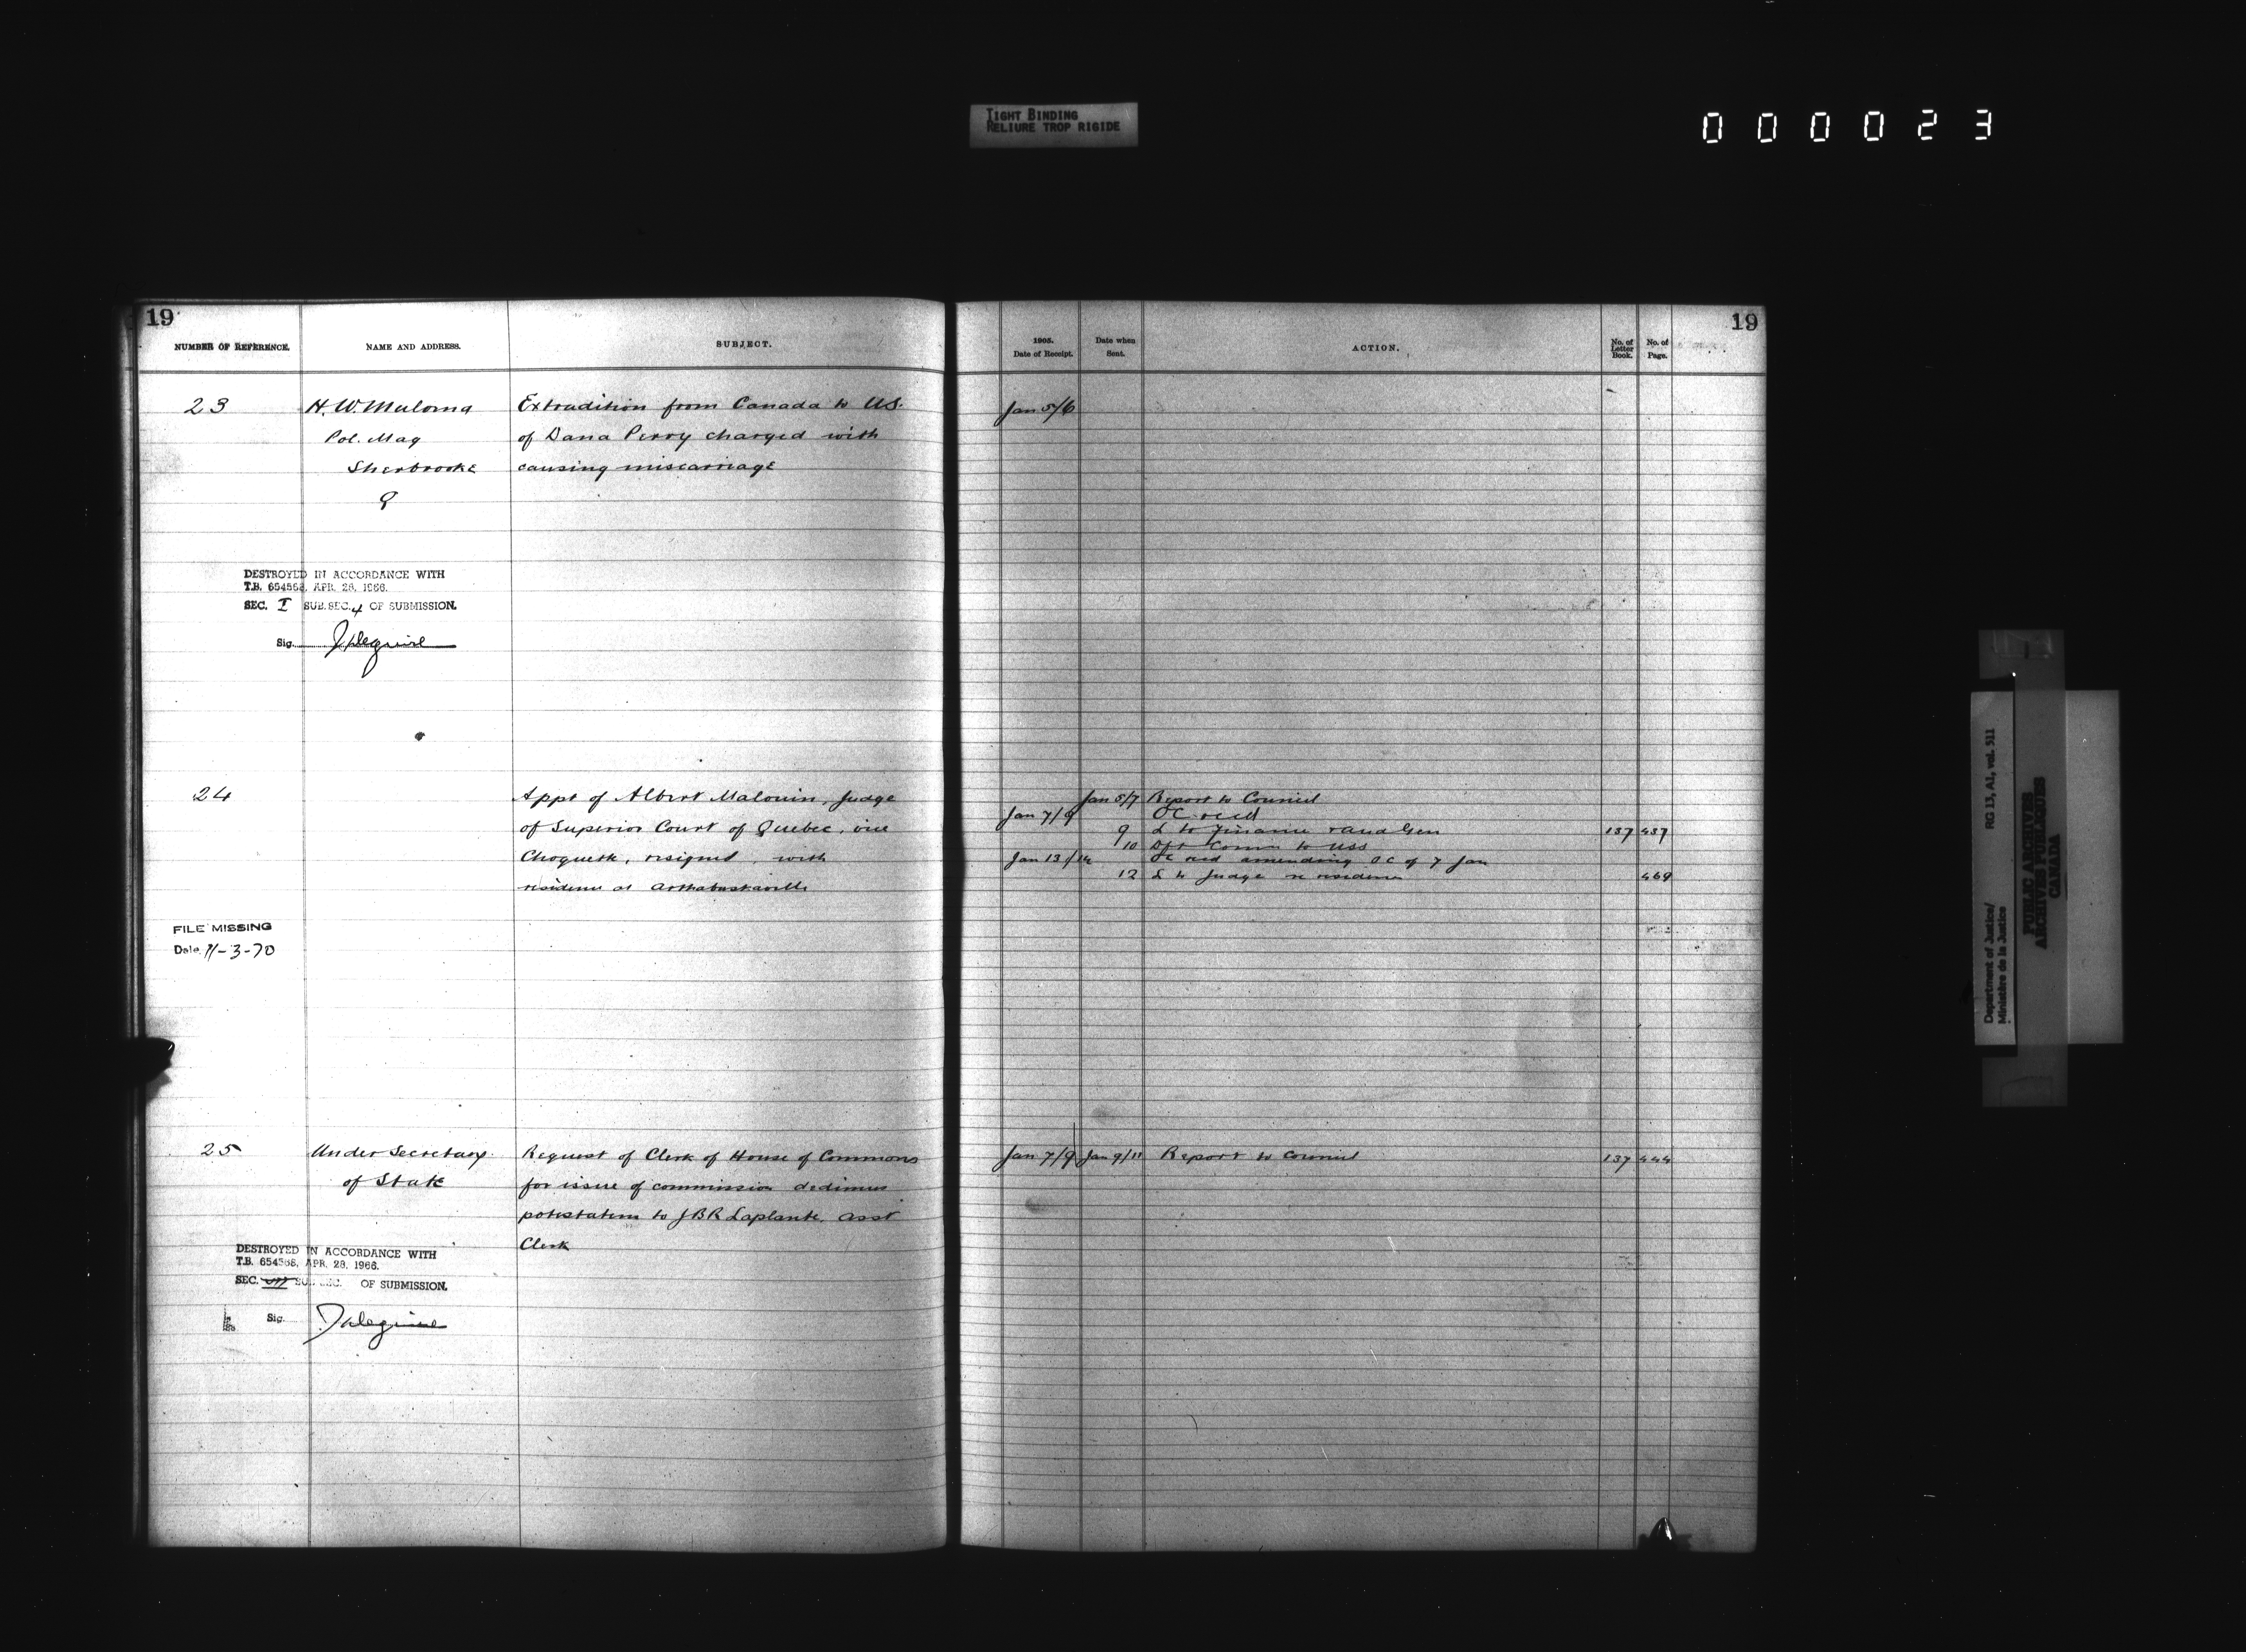 TIGHT BINDING
RELIURE TROP RIGIDE
000023
19
NUMBER OF REFERENCE.
NAME AND ADDRESS.
SUBJECT.
23
H. W. Mulvena
Pol. Mag
Sherbrooke
Q
Extradition from Canada to U.S.
of Dana Perry charged with
causing miscarriage
DESTROYED IN ACCORDANCE WITH
T.B. 654568, APR. 28, 1966.
SEC. I SUB. SEC. 4 OF SUBMISSION.
Sig.
24
Appt of Albert Malouin, Judge
of Superior Court of Quebec, vice
Choquette, resigned, with
residence at Arthabaskaville
FILE MISSING
Date 11-3-70
25
Under Secretary
of State
Request of Clerk of House of Commons
for issue of commission dedimus
potestatem to J B R Laplante, asst
Clerk
DESTROYED IN ACCORDANCE WITH
T.B. 654568, APR. 28, 1966.
SEC. VII SUB. SEC. OF SUBMISSION.
Sig.
19
1905.
Date of Receipt.
Date when
Sent.
ACTION.
No. of
Letter
Book.
No. of
Page.
Jan 5/6
Jan 5/7 Report to Council
Jan 7/9 OC recd
9 L to Finance & Aud Gen 137 437
10 Dft Comn to USS
Jan 13/14 OC recd amending OC of 7 Jan
12 L to Judge re residence 469
Jan 7/9 Jan 9/11 Report to Council 137 444
Department of Justice/
Ministère de la Justice
RG 13, A1, vol. 511
PUBLIC ARCHIVES
ARCHIVES PUBLIQUES
CANADA